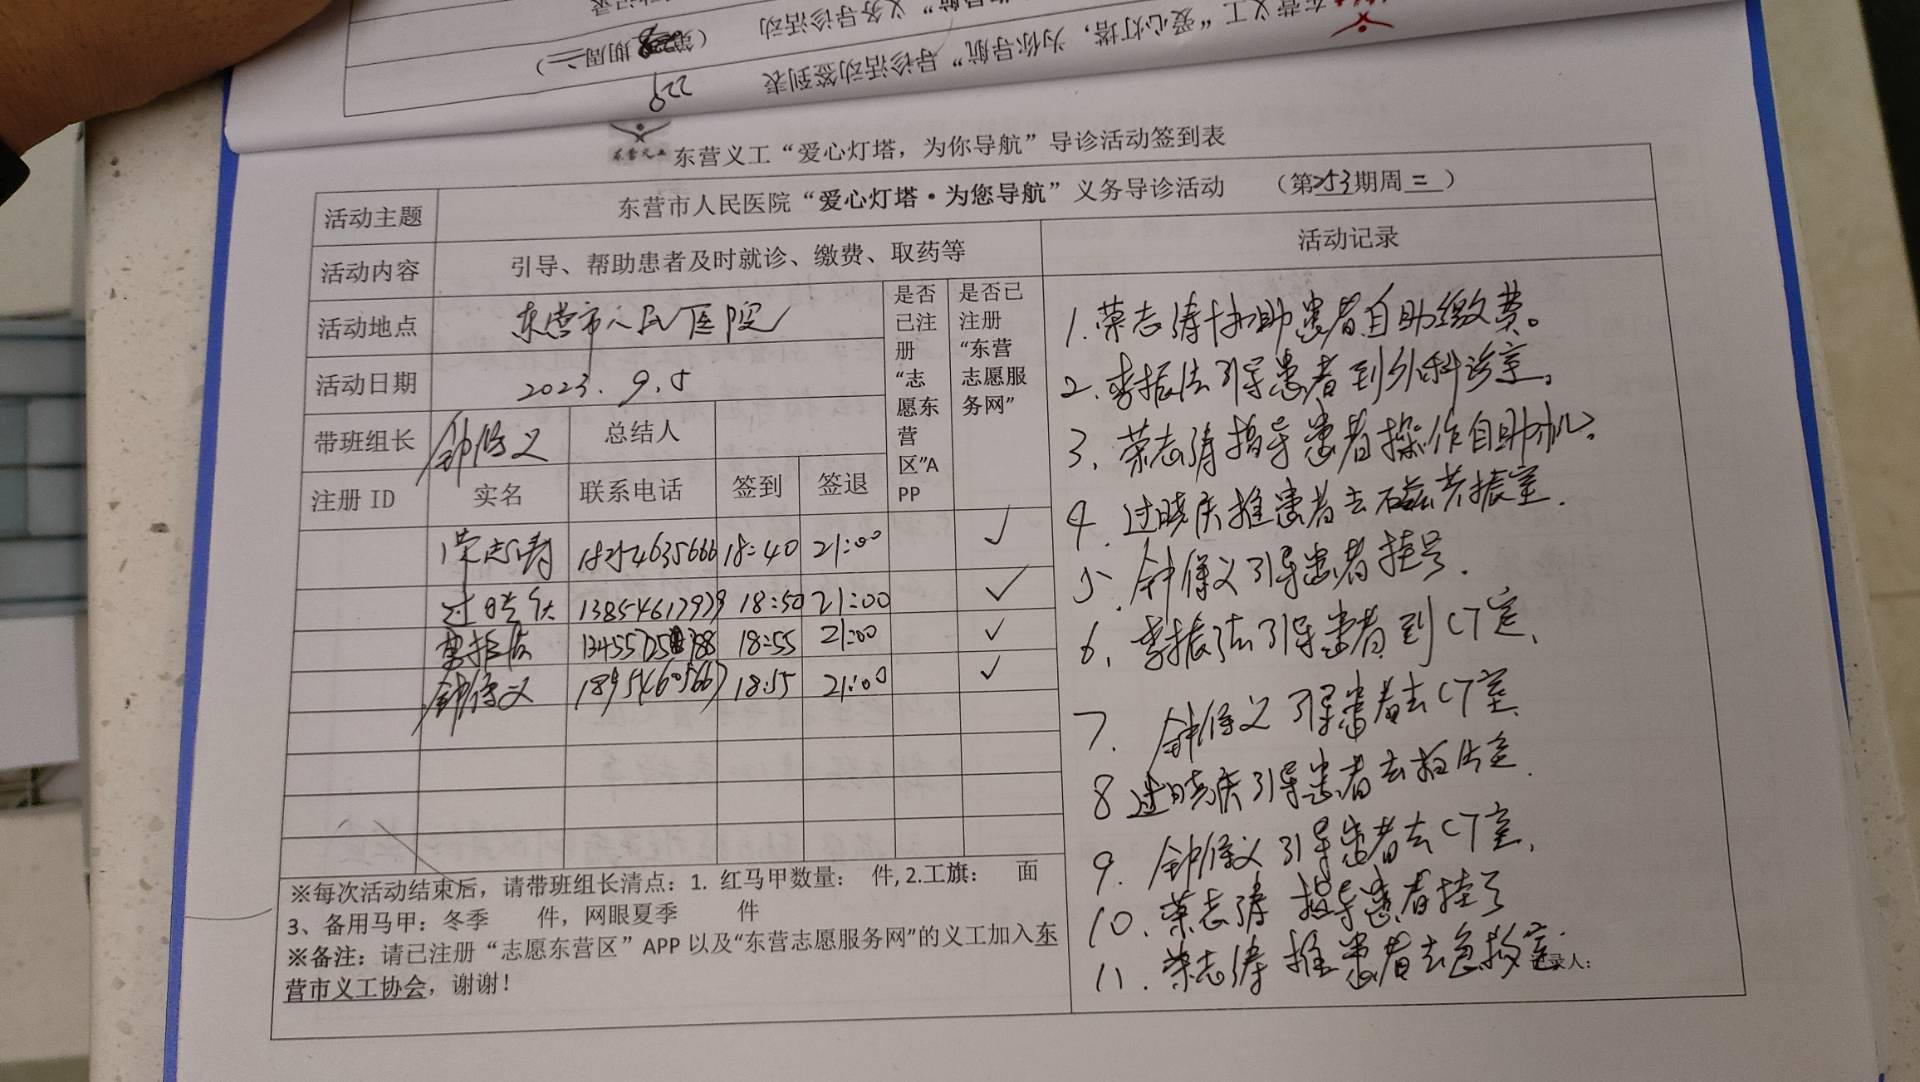 东营义工“爱心灯塔，为你导航”导诊活动签到表
229
（第 期周二）
东营义工
东营义工“爱心灯塔，为你导航”导诊活动签到表
活动主题 东营市人民医院“爱心灯塔·为您导航”义务导诊活动 （第253期周二）
活动内容 引导、帮助患者及时就诊、缴费、取药等
活动记录
活动地点 东营市人民医院
活动日期 2023.9.5
是否已注册“志愿东营区”APP
是否已注册“东营志愿服务网”
带班组长 钟修义 总结人
注册 ID 实名 联系电话 签到 签退
荣志涛 18254635666 18:40 21:00 ✓
过晓庆 13854617979 18:50 21:00 ✓
李振法 18:55 21:00 ✓
钟修义 18954605667 18:55 21:00 ✓
1.荣志涛协助患者自助缴费。
2.李振法引导患者到外科诊室。
3、荣志涛指导患者操作自助机。
4.过晓庆推患者去磁共振室.
5.钟修义引导患者挂号.
6、李振法引导患者到CT室、
7.钟修义引导患者去CT室
8过晓庆引导患者去拍片室.
9.钟修义引导患者去CT室、
10.荣志涛指导患者挂号
11.荣志涛推患者去急救室.
录人：
※每次活动结束后，请带班组长清点：1. 红马甲数量： 件, 2.工旗： 面
3、备用马甲：冬季 件，网眼夏季 件
※备注：请已注册“志愿东营区”APP 以及“东营志愿服务网”的义工加入东
营市义工协会，谢谢！